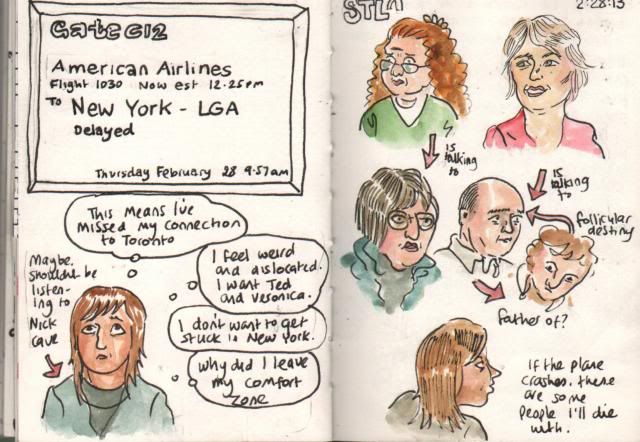 Gate C12
American Airlines
Flight 1030 Now est 12.25pm
To New York - LGA
Delayed
Thursday February 28 9.57am
This means I've
missed my connection
to Toronto
I feel weird
and dislocated.
I want Ted
and Veronica.
I don't want to get
stuck in New York.
Why did I leave
my comfort
zone
Maybe
shouldn't be
listen-
ing to
Nick
Cave
2.28.13
is
talking
to
is
talking
to
follicular
destiny
father of?
If the plane
crashes, these
are some
people I'll die
with.